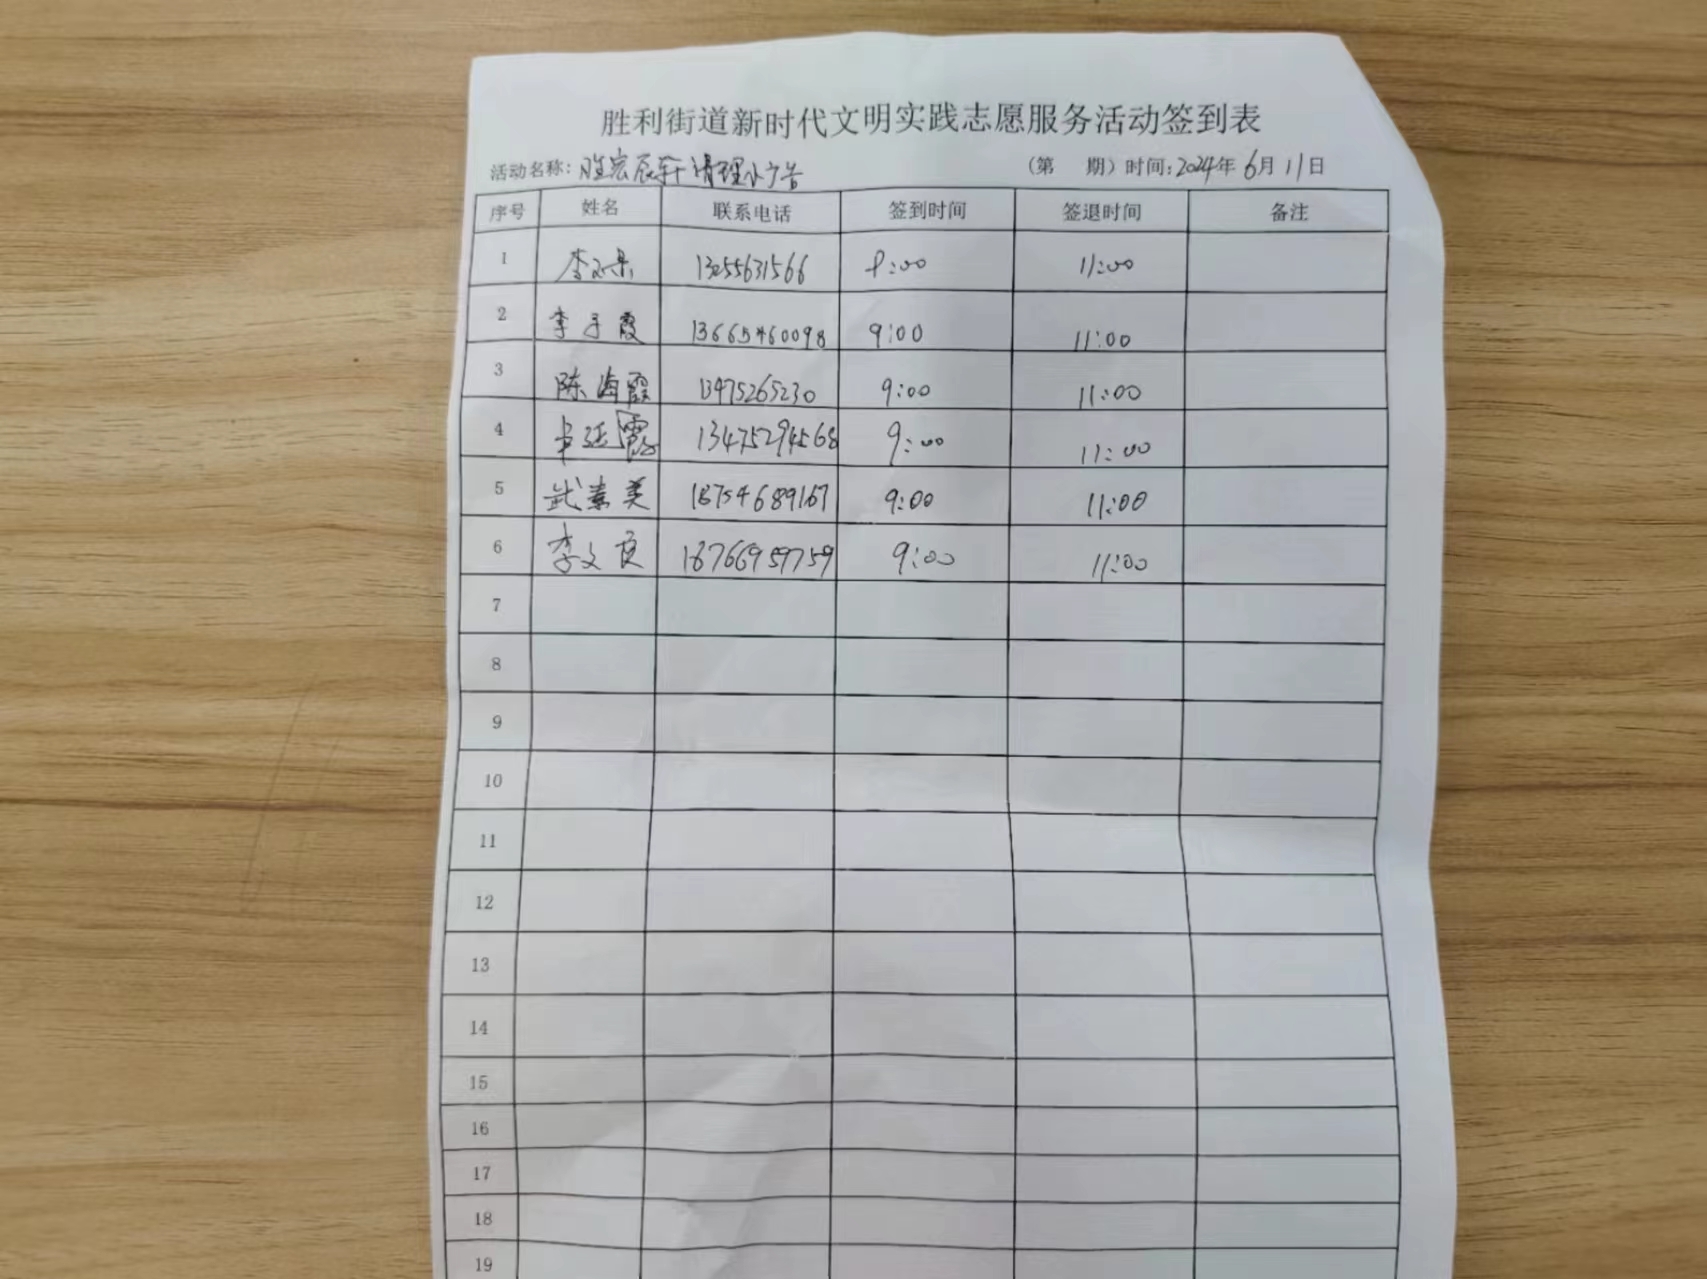 胜利街道新时代文明实践志愿服务活动签到表
活动名称：胜宏辰轩清理小广告 （第 期）时间:2024年6月11日
序号 姓名 联系电话 签到时间 签退时间 备注
1 13255631566 9:00 11:00
2 李子霞 13665460098 9:00 11:00
3 陈海霞 13475265230 9:00 11:00
4 13475294568 9:00 11:00
5 武素美 18754689167 9:00 11:00
6 李文良 18766959759 9:00 11:00
7
8
9
10
11
12
13
14
15
16
17
18
19